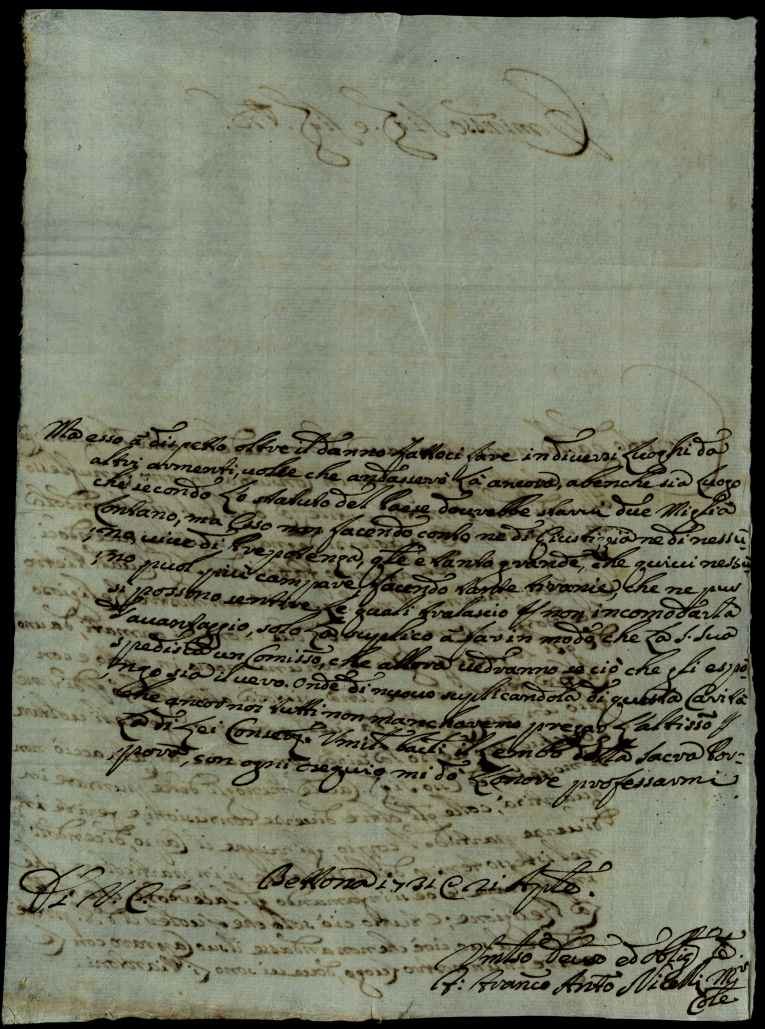 Ma esso à dispetto oltre il danno fattoci fare in diversi Luoghi da
altri armenti, volse che andassero là ancora, abenche sia Luogo
che secondo Lo statuto del Paese dovrebbe starvi due Miglia
Lontano, ma esso non facendo conto ne di Giustizia ne di nessu-
-no, vive di Prepotenza, qle è tanto grande, che quivi nessu-
-no puol più campare facendo tante tiranie, che ne pur
si possono sentire, Le quali tralascio p non incomodarla
d'avantaggio, solo La suplico à far in modo, che La S. Sua
spedisca un Comisso, che allora vedranno se ciò che gli espo-
-ngo sia il vero. Onde di nuovo suplicandola di questa Carità
che ancor noi tutti non mancharemo pregar L'altissō p
La di Lei Conserze. Umilte bacio il Lembo della Sacra Por-
-pora, con ogni ossequio mi dò L'onore professarmi
Di V. Em
Bettona 1731 21 Aple.
Umilso Devso ed Obligso Se
F. Franco Anto Nicolli Mro
Cole